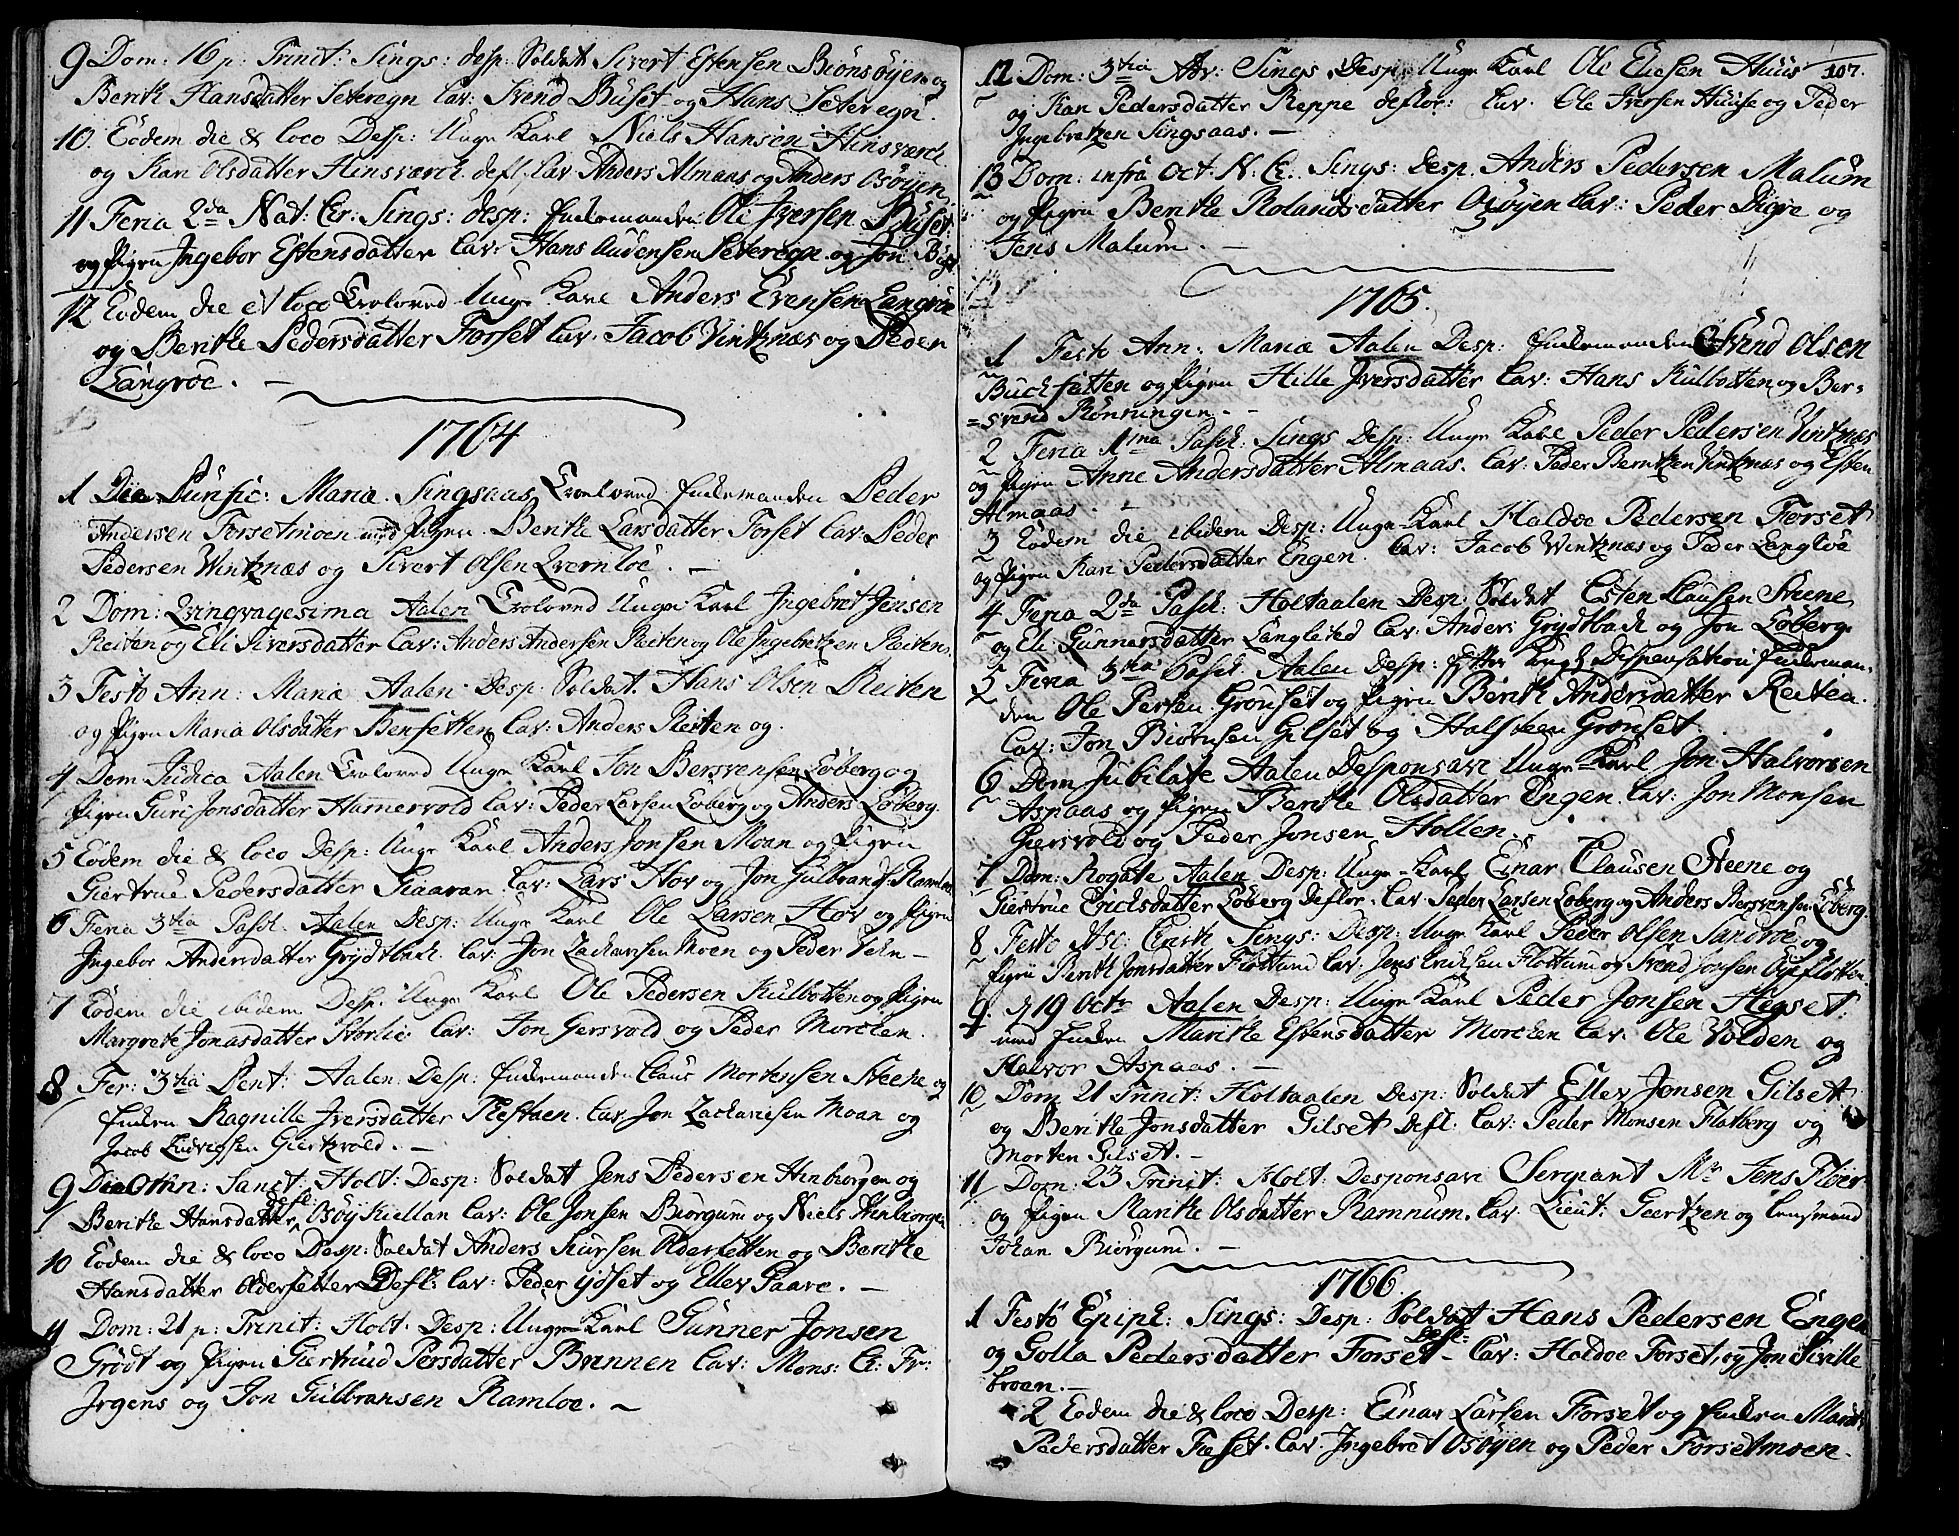 9 Dom: 16 p: Trinit: Sings: desp: Soldat Sivert Estensen Biönsöyen og
Berith Hansdatter Seteregn Cav: Svend Buset og Hans Seteregn.
10. Eodem die & loco Desp: Unge Karl Niels Hansen Hinsværck
og Kari Olsdatter Hinsværck defl. Cav Anders Almaas og Anders Osöyen.
11 Feria 2da Nat: Cr. Sings: desp: Enkemanden Ole Iversen Buset
og Pigen Ingebor Estensdatter Cav: Hans Audensen Seteregn og Jon Buset
12 Eodem die et loco Troloved Unge Karl Anders Evensen Langröe
og Berithe Pedersdatter Forset Cav. Jacob Vintznæs og Peder
Langröe. —
1764
1 Die Purific: Mariæ. Singsaas Troloved Enkemanden Peder
Andersen Forsetmoen med Pigen Berithe Larsdatter Forset Cav: Peder
Pedersen Wintznæs og Sivert Olsen Qvernlöe. —
2 Dom: Qvinqvagesima Aalen Troloved Unge Karl Ingebret Jensen
Reiten og Eli Siversdatter Cav: Anders Andersen Reiten og Ole Ingebritzen Reiten.
3 Festo Ann: Mariæ Aalen Desp: Soldat. Hans Olsen Reiten
og Pigen Maria Olsdatter Bensetten Cav: Anders Reiten og.
4 Dom Judica Aalen Troloved Unge Karl Jon Bersvensen Löberg og
Pigen Guri Jonsdatter Hamervold Cav: Peder Larsen Löberg og Anders Löberg.
5 Eodem die & loco Desp: Unge Karl Anders Jonsen Moan og Pigen
Giertrue Pedersdatter Cav: Lars Hov og Jon Gulbrands. Ramloe
6 Feria 3tia Pasch. Aalen Desp: Unge Karl Ole Larsen Hov og Pigen
Ingebor Andersdatter Grydtbach. Cav: Jon Zachariesen Moen og Peder —
7 Eodem die ibidem Desp. Unge Karl Ole Pedersen Kulbotten og Pigen
Margrete Jonasdatter Storlie Cav: Jon Gersvold og Peder Morchen.
8 Fer: 3tia Pent: Aalen: Desp: Enkemanden Claus Mortensen Steene og
Enken Ragnille Iversdatter Refstaen. Cav: Jon Zachariesen Moan og
Jacob Ludvigsen Giertzvold. —
9 Die Omn: Sanct: Holt: Desp: Soldat Jens Pedersen Hinborgen og
Berithe Hansdatter defl: Osöy Kiellan Cav: Ole Jonsen Biörgum og Niels Hinborgen
10 Eodem die & loco Desp: Soldat Anders Siursen Oldersetten og Berithe
Hansdatter Oldersetter Defl: Cav: Peder ydset og Ellev Paare. —
11 Dom: 21 p: Trinit: Holt. Desp: Unge Karl Gunner Jonsen
Grödt og Pigen Giertrud Persdatter Brennen Cav: Mons: C: Fr:
Irgens og Jon Gulbransen Ramloe. —
107.
12 Dom: 3tia Adv: Sings Desp: Unge Karl Ole Eliesen Huus
og Kari Pedersdatter Reppe deflor: Cav. Ole Iversen Huuse og Peder
Ingebretzen Singsaas. —
13 Dom: infra Oct. N. Cr. Sings: desp. Anders Pedersen Malum
og Pigen Berithe Rolandsdatter Osöyen Cav: Peder Digre og
Jens Malum. —
1765.
1 Festo Ann: Mariæ Aalen Desp: Enkemanden Svend Olsen
Buckhsetten og Pigen Hille Iversdatter Cav: Hans Kulbotten og Ber=
=svend Rönningen. —
2 Feria 1ma Pasch: Sings Desp: Unge Karl Peder Pedersen Vintznæs
og Pigen Anne Andersdatter Almaas. Cav: Peder Berntzen Vintznæs og Esten
Almaas. —
3 Eodem die ibidem Desp: Unge Karl Haldoe Pedersen Forset
og Pigen Kari Pedersdatter Engen. Cav: Jacob Wintznæs og Peder Langlöe
4 Feria 2da Pasch: Holtaalen Desp: Soldat Esten Clausen Steene
og Eli Gunnersdatter Langlied Cav: Anders Grydtbach og Jon Löberg.
5 Feria 3tia Pasch. Aalen Desp: efter Kongl. Dispensation Enkeman-
den Ole Persen Grönset og Pigen Berith Andersdatter Reiten.
Cav: Jon Biörnsen Gilset og Halsteen Grönset.
6 Dom Jubilate Aalen Desponsavi Unge Karl Jon Halvorsen
Aspaas og Pigen Berithe Olsdatter Engen. Cav: Jon Monsen
Giersvold og Peder Jonsen Hollen.
7 Dom: Rogate Aalen Desp: Unge Karl Einar Clausen Steene og
Giertrue Erichsdatter Löberg Deflor. Cav. Peder Larsen Löberg og Anders Bersvensen Löberg.
8 Festo Asc: Christi Sings: Desp: Unge Karl Peder Olsen Sandröe og
Pigen Berith Jonsdatter Flottum Cav. Jens Erichsen Flottum og Svend Jonsen
9. D 19 Octr Aalen Desp: Unge Karl Peder Jonsen Hegset
med Enken Marithe Estensdatter Morchen Cav: Ole Volden og
Halvor Aspaas. —
10 Dom 21 Trinit: Holtaalen Desp: Soldat Ellev Jonsen Gilset
og Berithe Jonsdatter Gilset Defl: Cav: Peder Monsen Flatberg og
Morten Gilset. —
11 Dom: 23 Trinit: Holt: Desponsavi Sergeant Mr Jens Flöer
og Pigen Marithe Olsdatter Ramnum. Cav. Lieut: Giertzen og Lensmand
Johan Biörgum. —
1766
1 Festo Epiph: Sings: Desp: Soldat Hans Pedersen Engen
og Golla Pedersdatter Forset defl: Cav: Haldoe Forset, og Jon Siville
broen. —
2 Eodem die & loco Desp: Einar Larsen Forset og Enken Marit
Pedersdatter Fosset. Cav. Ingebret Osöyen og Peder Forsetmoen.